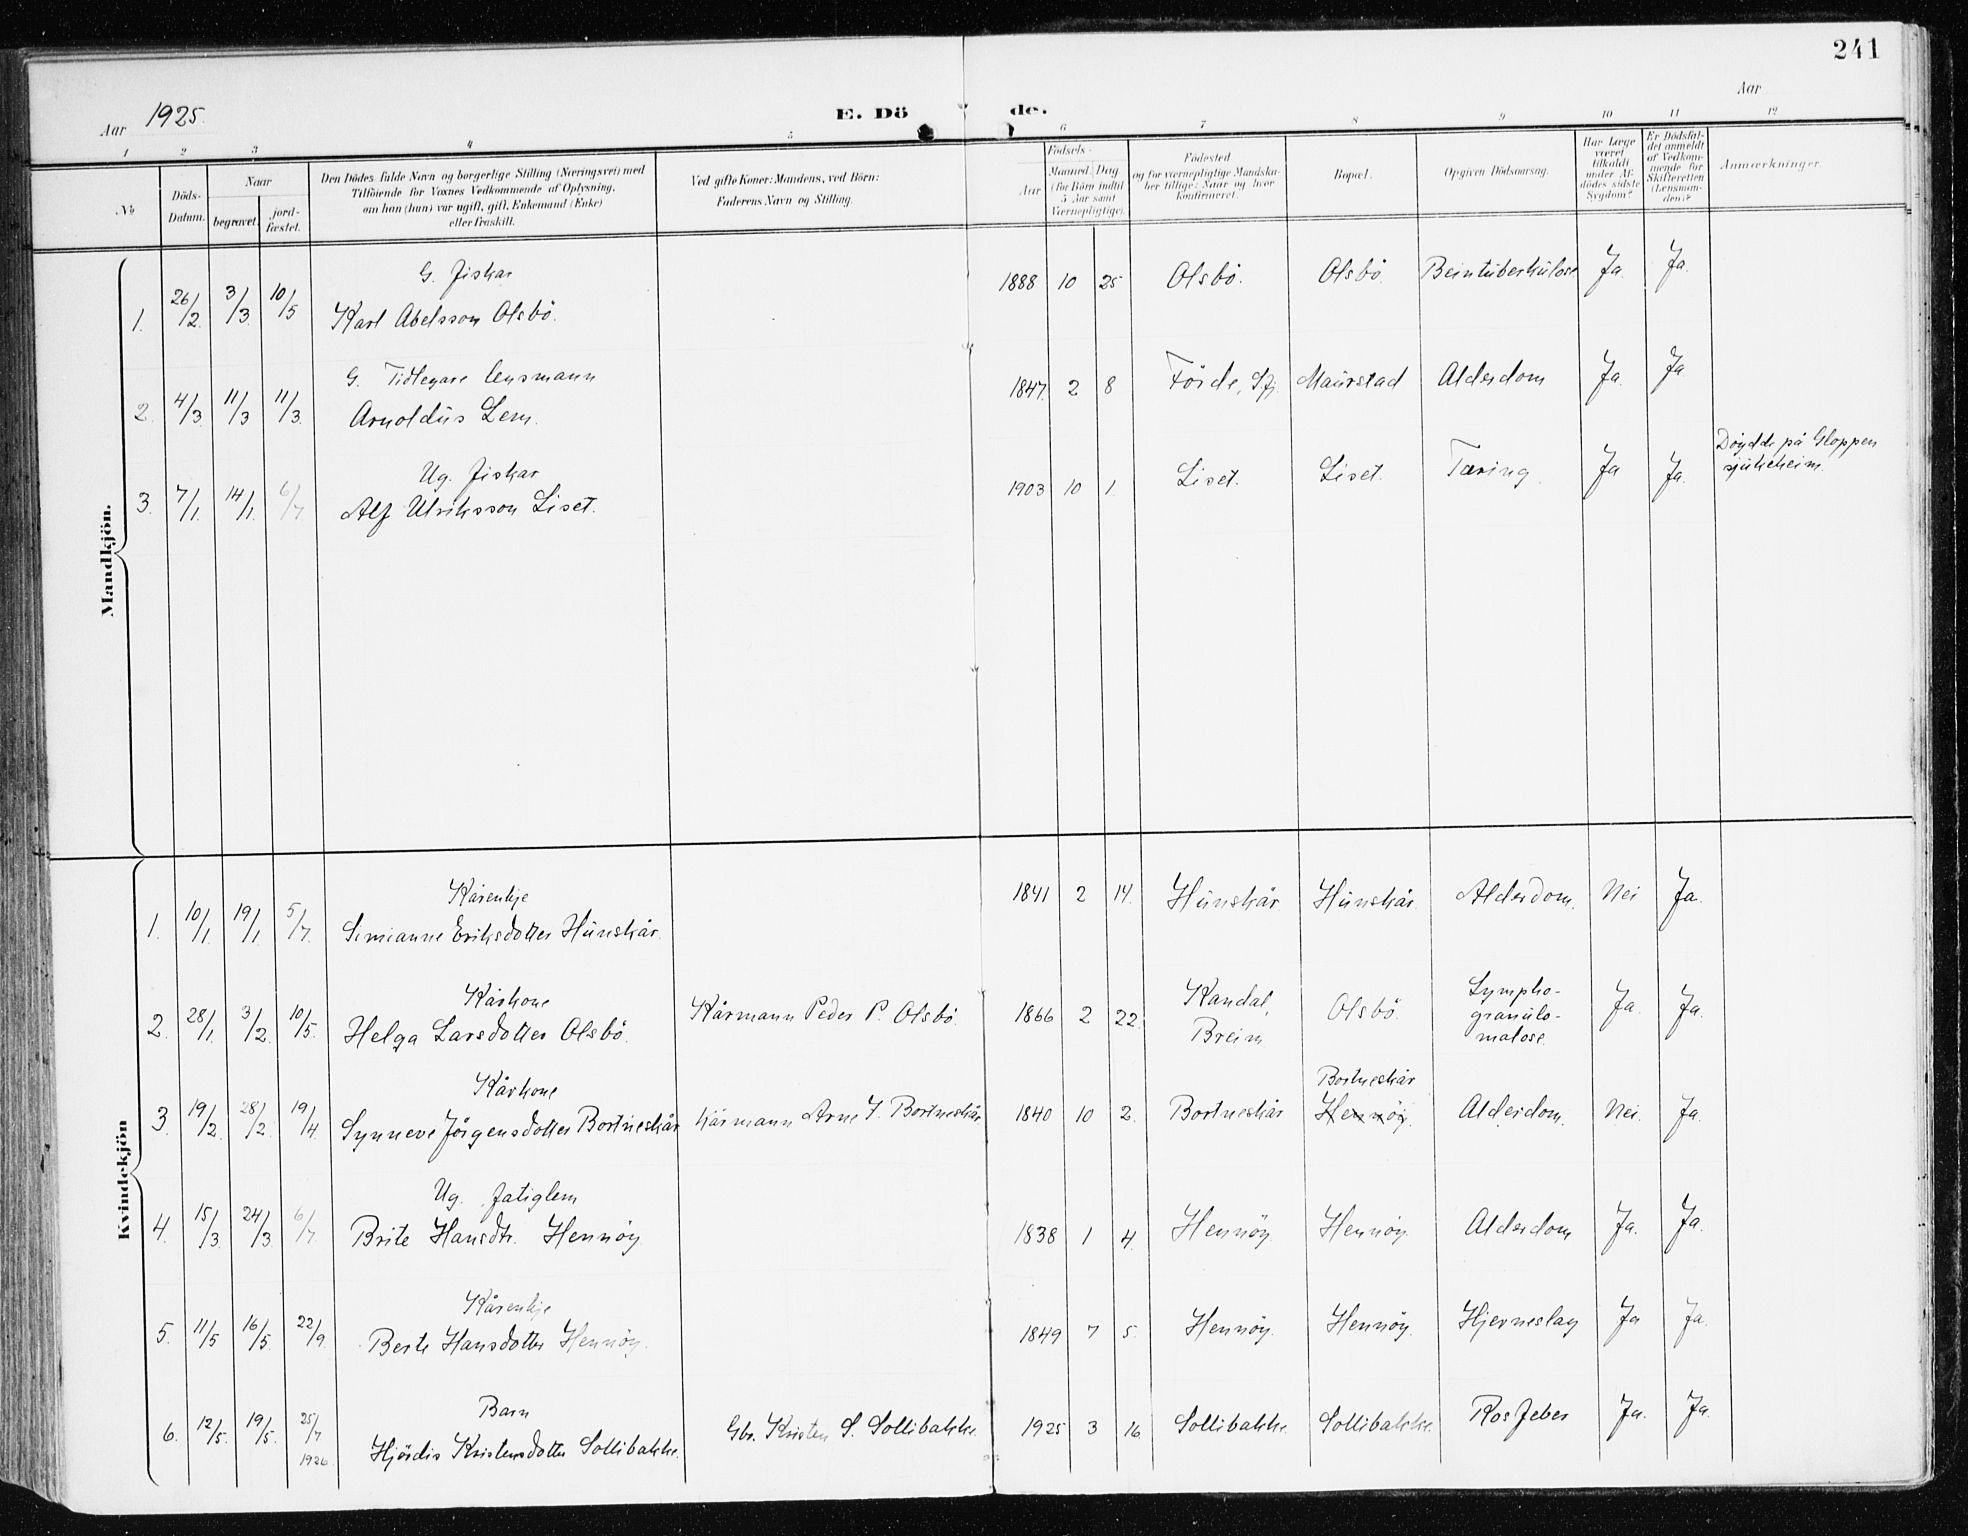 241
Aar 1925
E. Döde.
Aar
1 2 3 4 5 6 7 8 9 10 11 12
No
Döds-Datum.
Naar
begravet.
jord-fæstet.
Den Dödes fulde Navn og borgerlige Stilling (Næringsvei) med
Tilföiende for Voxnes Vedkommende af Oplysning,
om han (hun) var ugift, gift, Enkemand (Enke)
eller fraskilt.
Ved gifte Koner: Mandens, ved Börn:
Faderens Navn og Stilling.
Födsels-
Aar
Maaned. Dag
(for Börn indtil
5 Aar samt
Værnepligtige).
Födested
og for værnepligtige Mandska-
ber tillige: Naar og hvor
konfirmeret.
Bopæl.
Opgiven Dödsaarsag.
Har Læge
været
tilkaldt
under Af-
dödes sidste
Sygdom?
Er Dödsfal-
det anmeldt
af Vedkom-
mende for
Skifteretten
(Lensman-
den)?
Anmærkninger
Mandkjön.
G. Fiskar
1. 26/2. 3/3. 10/5 Karl Abelsson Olsbö. 1888 10 25 Olsbö. Olsbö Beintuberkulose Ja. Ja.
G. Tidlegare lensmann
2. 4/3. 11/3 11/3. Arnoldus Lem. 1847. 2 8 Förde, Sfj. Maurstad Alderdom Ja. Ja
Ug. Fiskar
3. 7/1. 14/1. 6/7 Alf Ulriksson Liset. 1903 10 1 Liset. Liset. Tæring Ja Ja. Döydde på Gloppen
sjukeheim.
Kvindekjön
Kårenkje
1. 10/1. 19/1. 5/7. Simianne Eriksdotter Hunskår. 1841 2 14. Hunskår Hunskår. Alderdom. Nei Ja.
Kårkone
2. 28/1. 3/2. 10/5. Helga Larsdotter Olsbö. Kårmann Peder P. Olsbö. 1866 2 22. Kandal,
Breim Olsbö. Lympho-
granulo-
matose. Ja. Ja.
Kårkone
3. 19/2. 28/2. 19/4. Synneve Jörgensdotter Bortneskår Kårmann Arne J. Bortneskår 1840 10 2. Bortneskår Bortneskår
Hennöy. Alderdom. Nei. Ja.
Ug. fatiglem
4. 15/3. 24/3. 6/7. Brite Hansdtr. Hennöy 1838 1 4. Hennöy. Hennöy. Alderdom Ja. Ja.
Kårenkje
5. 11/5 16/5. 22/9. Berte Hansdotter Hennöy. 1849 7 5. Hennöy. Hennöy. Hjerneslag Ja Ja.
Barn
6. 12/5. 19/5. 25/7 1926. Hjördis Kristensdotter Sollibakke. Gbr. Kristen S. Sollibakke. 1925 3 16. Sollibakke. Sollibakke. Rosfeber Ja. Ja.